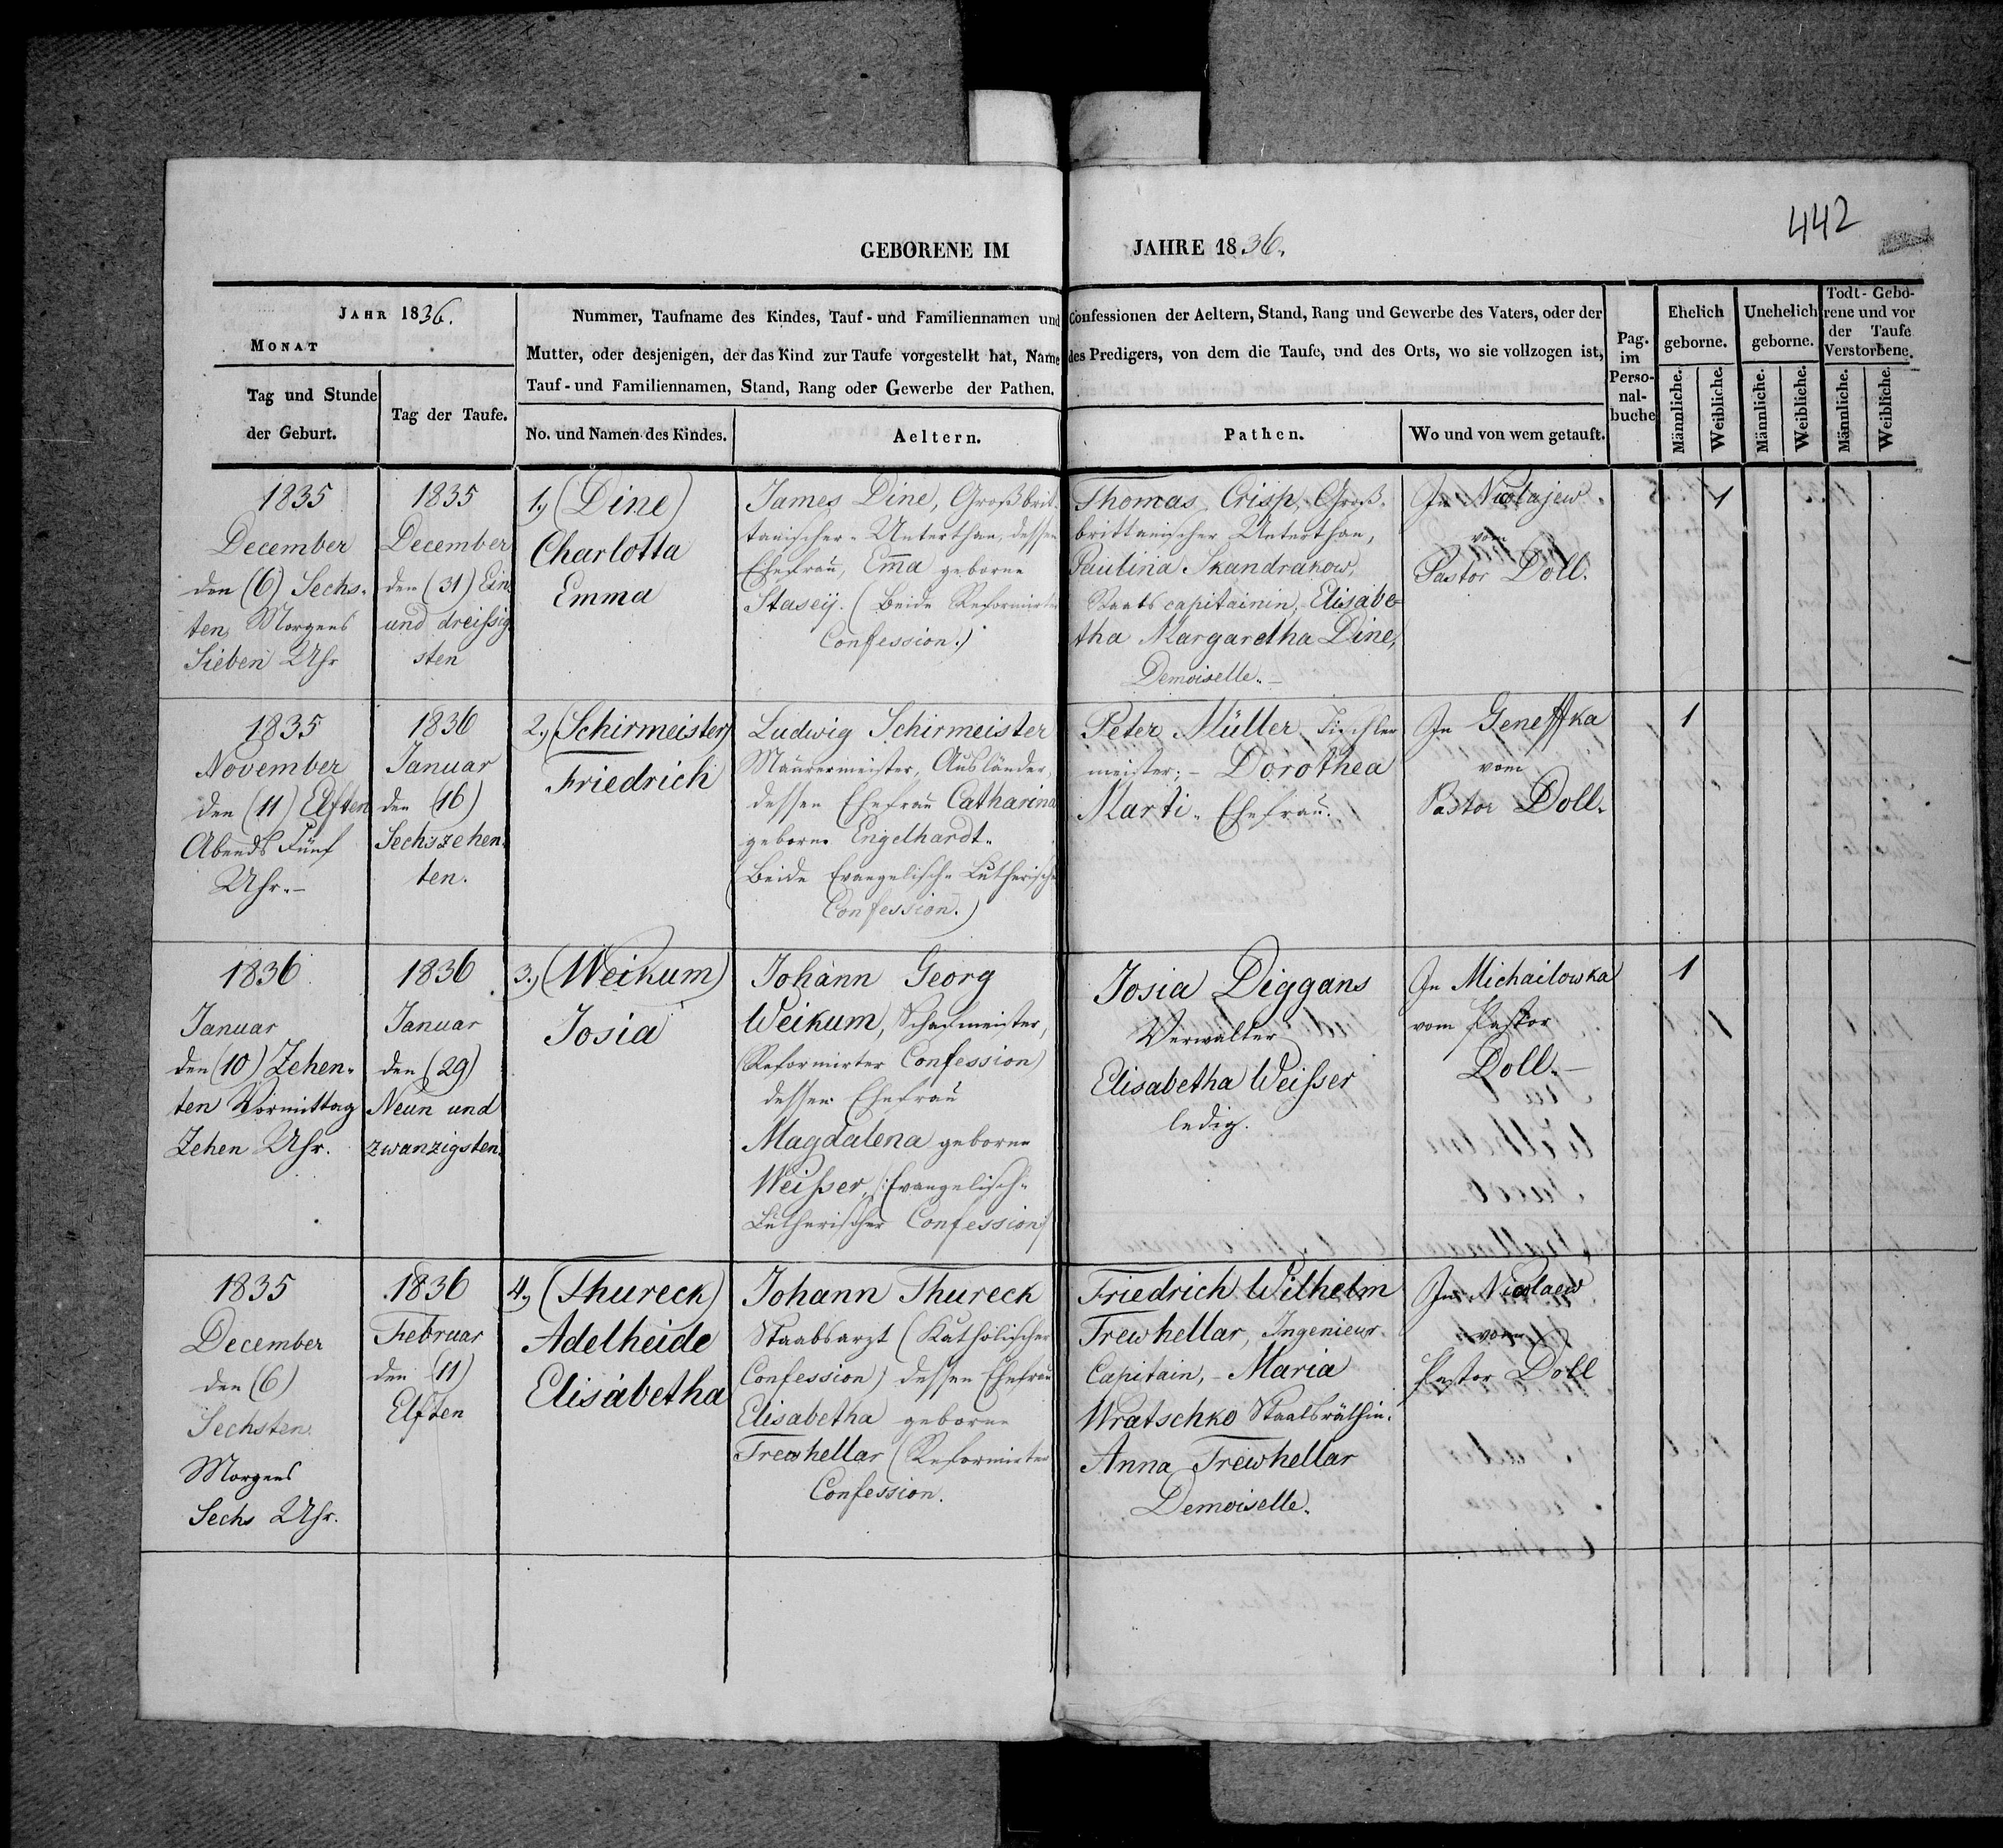 442
GEBORENE IM JAHRE 1836.
JAHR 1836.
MONAT
Tag und Stunde
der Geburt.
Tag der Taufe.
Nummer, Taufname des Kindes, Tauf- und Familiennamen und Confessionen der Aeltern, Stand, Rang und Gewerbe des Vaters, oder der
Mutter, oder desjenigen, der das Kind zur Taufe vorgestellt hat, Name des Predigers, von dem die Taufe, und des Orts, wo sie vollzogen ist,
Tauf- und Familiennamen, Stand, Rang oder Gewerbe der Pathen.
No. und Namen des Kindes.
Aeltern.
Pathen.
Wo und von wem getauft.
Pag.
im
Perso-
nal-
buche
Ehelich
geborne.
Männliche.
Weibliche.
Unehelich
geborne.
Männliche.
Weibliche.
Todt-Gebo-
rene und vor
der Taufe
Verstorbene.
Männliche.
Weibliche.
1835
December
den (6) Sechs-
ten, Morgens
Sieben Uhr
1835
December
den (31) Ein
und dreißig
sten
1, (Dine)
Charlotta
Emma
James Dine, Großbrit-
tanischer Unterthan, dessen
Ehefrau, Em̅a geborne
Staseÿ. (Beide Reformirter
Confession.)
Thomas Crisp, Groß-
brittanischer Unterthan,
Paulina Skandrakow,
Staabscapitainin, Elisabe-
tha Margaretha Dine,
Demoiselle.
In Nicolajew
vom
Pastor Doll.
1
1835
November
den (11) Elften
Abends Fünf
Uhr.
1836
Januar
den (16)
Sechszehen-
ten.
2, (Schirmeister)
Friedrich
Ludwig Schirmeister
Maurermeister, Ausländer,
dessen Ehefrau Catharina
geborne Engelhardt.
(Beide Evangelisch-Lutherischer
Confession.)
Peter Müller Tischler
meister; - Dorothea
Marti. Ehefrau.
In Geneffka
vom
Pastor Doll.
1
1836
Januar
den (10) Zehen-
ten Vormittag
Zehen Uhr.
1836
Januar
den (29)
Neun und
zwanzigsten.
3., (Weikum)
Josia
Johann Georg
Weikum, Schafmeister,
(Reformirter Confession)
dessen Ehefrau
Magdalena geborne
Weißer, (Evangelisch-
Lutherischer Confession)
Josia Diggans
Verwalter
Elisabetha Weißer
ledig.
In Michailowka
vom Pastor
Doll.
1
1835
December
den (6)
Sechsten
Morgens
Sechs Uhr.
1836
Februar
den (11)
Elften
4., (Thureck)
Adelheide
Elisabetha
Johann Thureck
Staabsarzt (Katholischer
Confession) dessen Ehefrau
Elisabetha geborne
Trewhellar (Reformirter
Confession.
Friedrich Wilhelm
Trewhellar, Ingenieur
Capitain, - Maria
Wratschko Staatsräthin.
Anna Trewhellar
Demoiselle.
In Nicolaew
vom
Pastor Doll